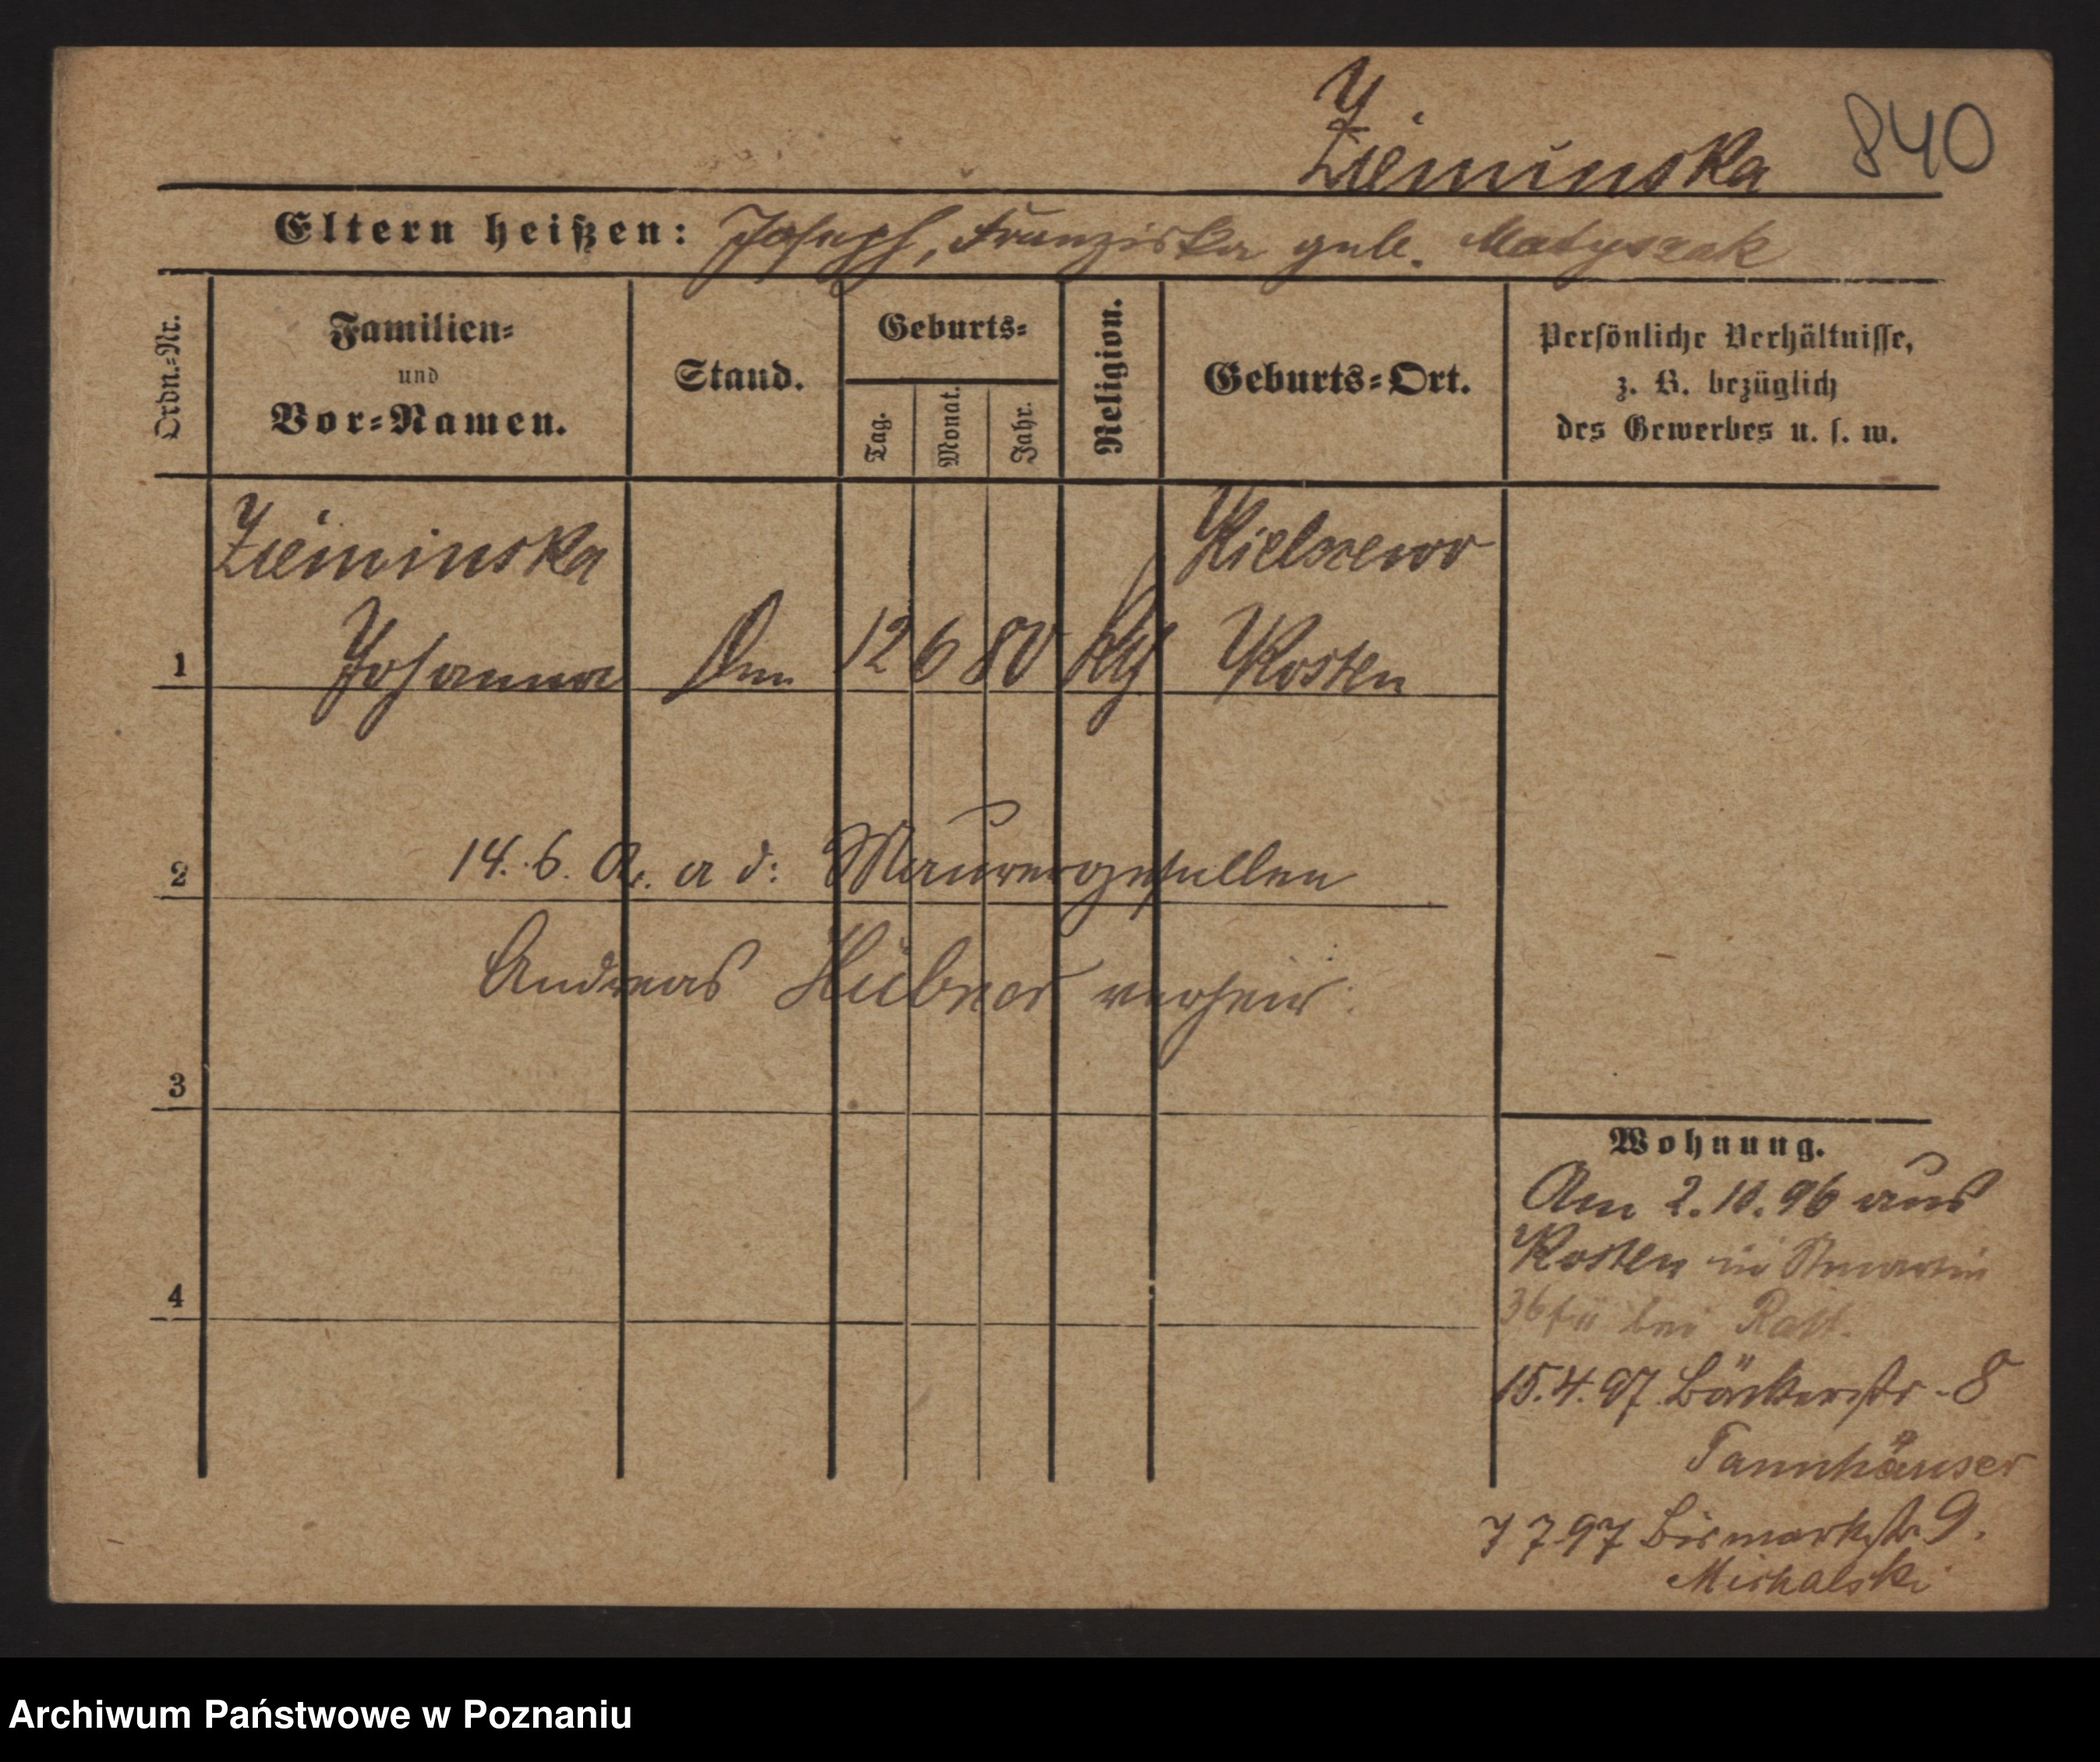 840
Zieminska
Eltern heißen: Joseph, Franziska geb. Matyszak
Ordn.-Nr.
Familien-
und
Vor-Namen.
Stand.
Geburts-
Tag.
Monat.
Jahr.
Religion.
Geburts-Ort.
Persönliche Verhältnisse,
z. B. bezüglich
des Gewerbes u. s. w.
Zieminska Kielczewo
1 Johanna 12 6 80 Kosten
2 14. 6. a d: Maurergesellen
Andreas Hübner verheir:
3
4
Wohnung.
Am 2.10.96 aus
Kosten in
36 bei
15.4.97 Bäckerstr. 8
Tannhäuser
7 7 97 Bismarkstr 9.
Michalski
Archiwum Państwowe w Poznaniu